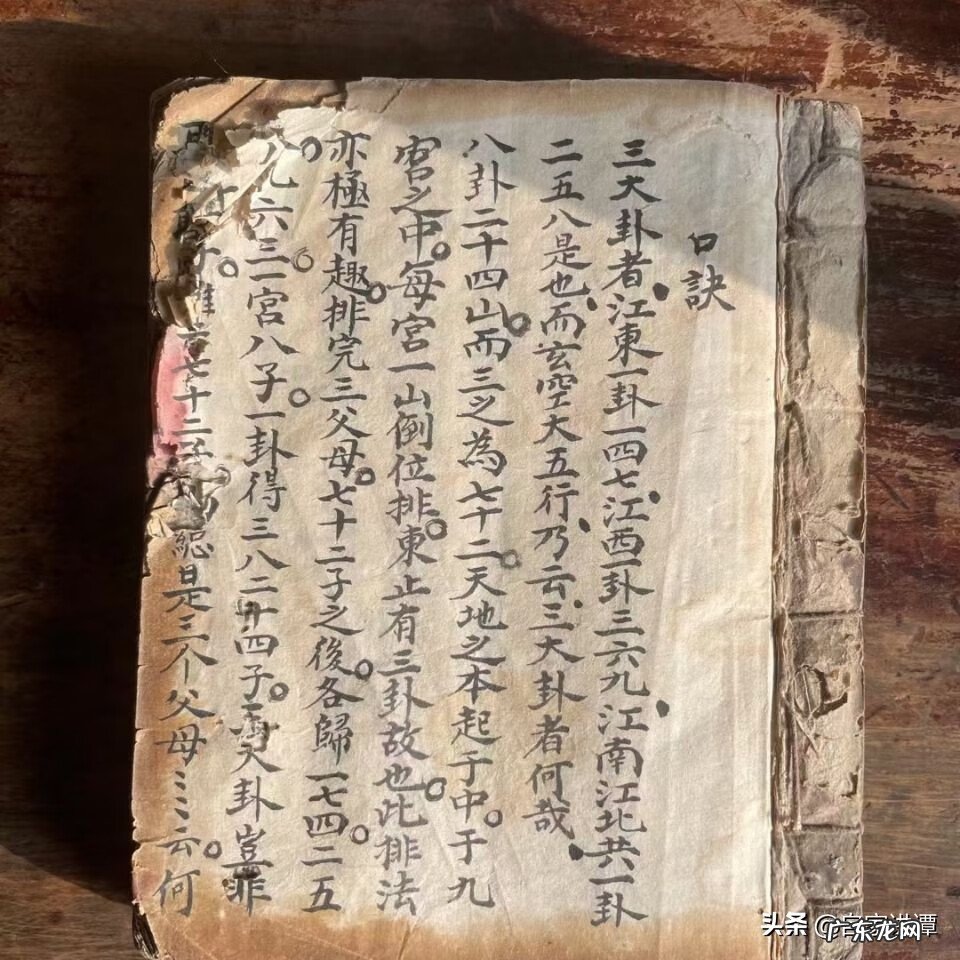 口訣
三大卦者、江東一卦一四七、江西一卦三六九、江南江北共一卦
二五八是也、而玄空大五行、乃云、三大卦者何哉、
八卦二十四山。而三之為七十二。天地之本起于中。于九
宮之中。每宮一山倒位排。東止有三卦故也。此排法
亦極有趣。排完三父母。七十二子之後。各歸一七四。二五
八。九六三。一宮八子。一卦得三八二十四子。三大卦豈非
子。雖言七十二子 總是三个父母〻〻云。何
头条 @名家讲谭
广东龙网